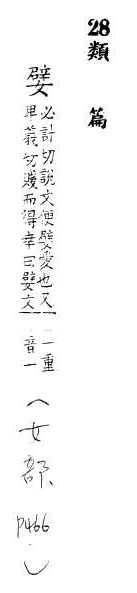 28類 篇
嬖
必計切說文便嬖愛也又
卑義切賤而得幸曰嬖文
一重
音一
(女部
P466.)